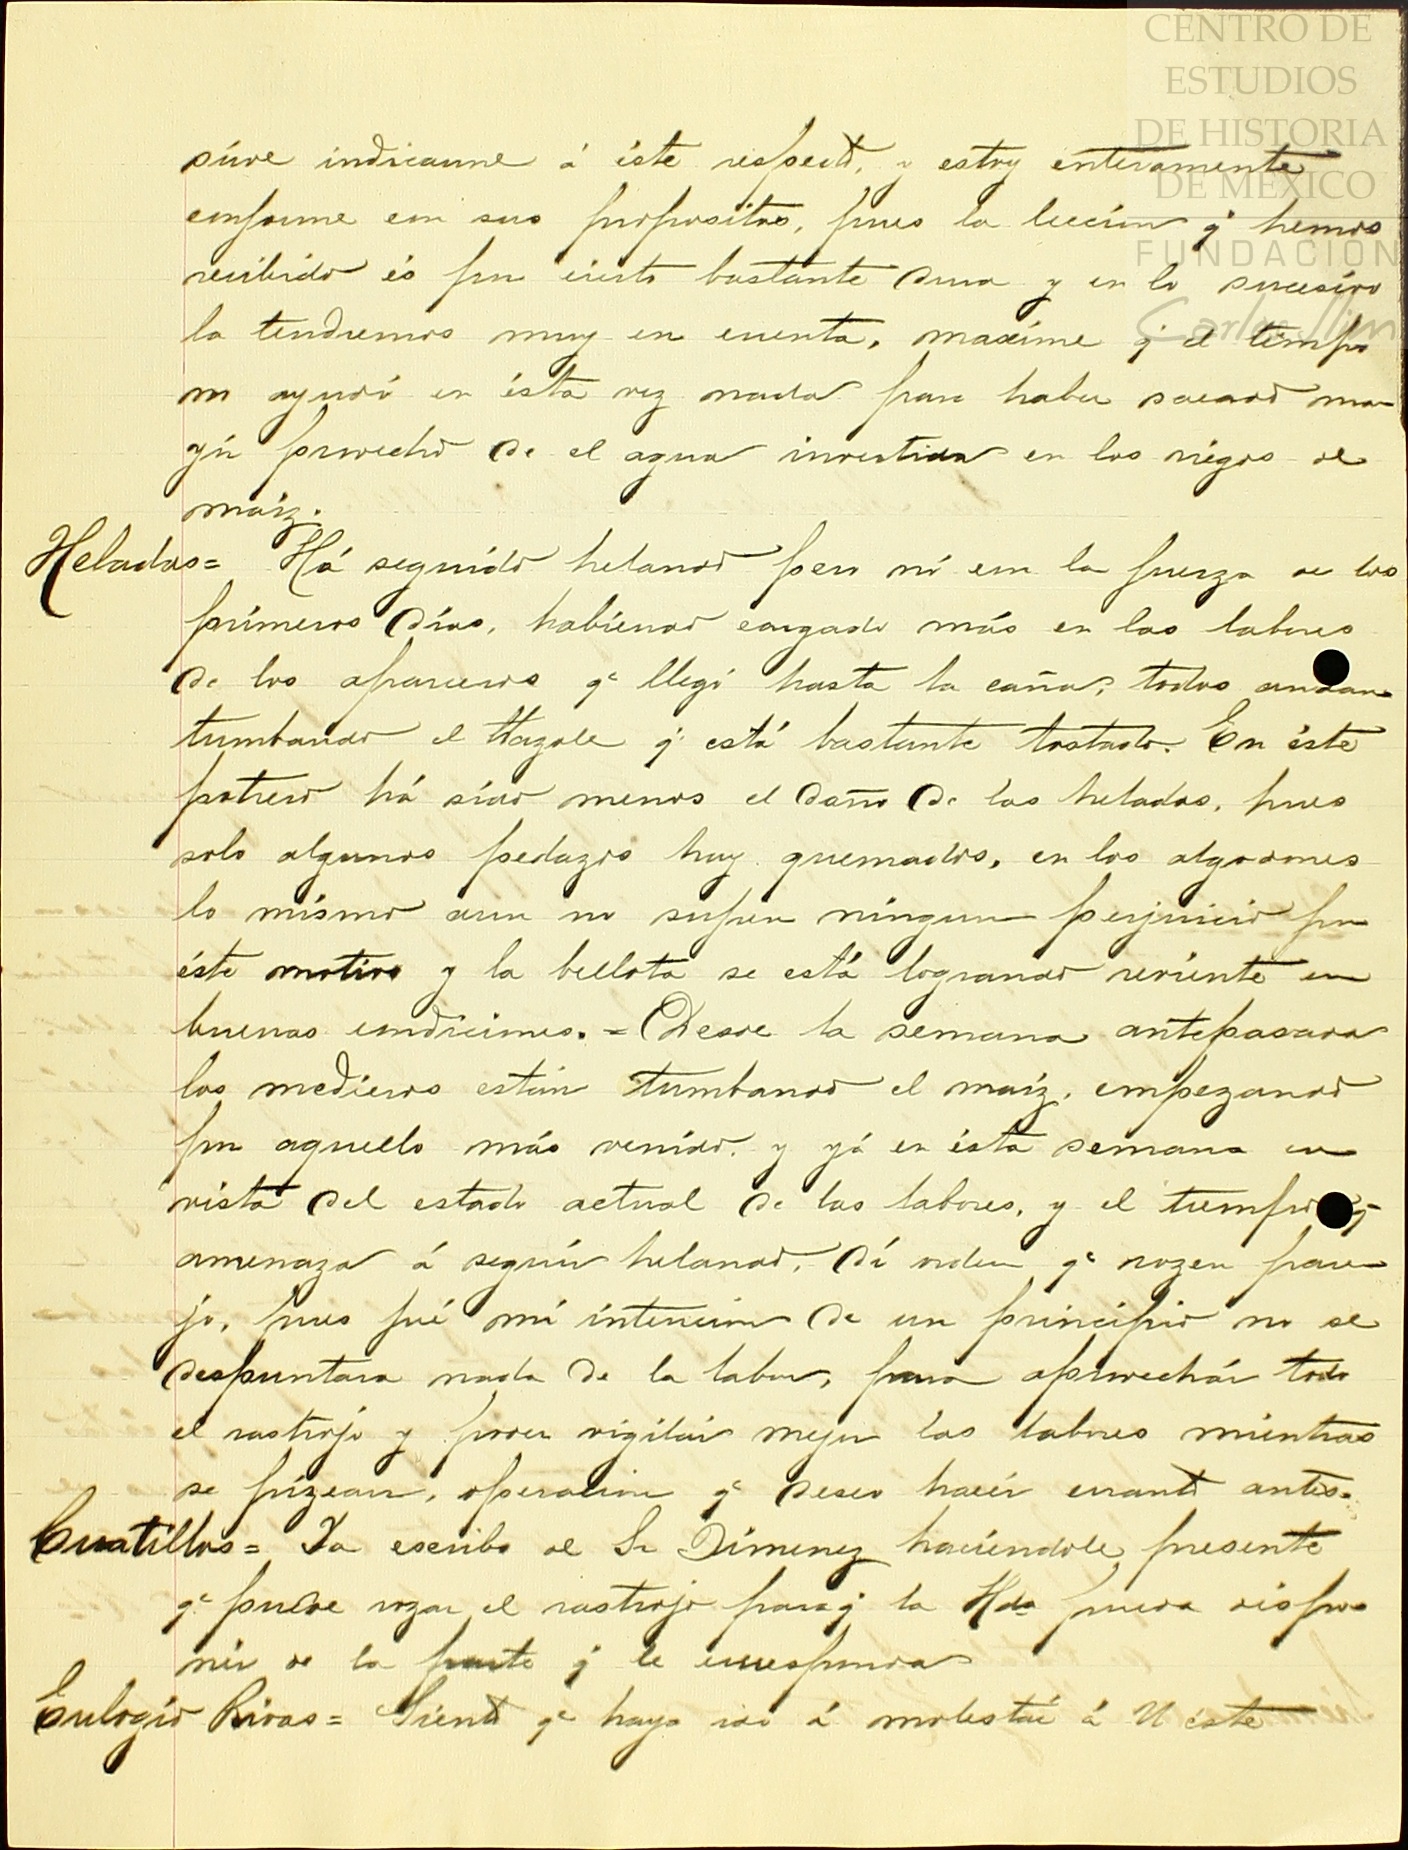 CENTRO DE
ESTUDIOS
DE HISTORIA
DE MEXICO
FUNDACIÓN
Carlos Slim
sirve indicarme á éste respecto, y estoy enteramente
conforme con sus propositos, pues la lección q' hemos
recibido és por cierto bastante dura y en lo sucesivo
la tendremos muy en cuenta, maxíme q' el tiempo
no ayudó en ésta vez nada para haber sacado ma-
yór provecho de el agua invertida en los riegos de
maíz.
Heladas = Há seguido helando pero nó con la fuerza de los
primeros días, habiendo cargado más en las labores
de los aparceros qe llegó hasta la caña, todos andan
tumbando el tlazole q' está bastante tostado. En éste
potrero há sido menos el daño de las heladas, pues
solo algunos pedazos hay quemados, en los algodones
lo mísmo aun no sufren ningun perjuicio por
éste motivo y la bellota se está logrando reviente en
buenas condiciones. = Desde la semana antepasada
los medieros están tumbando el maíz, empezando
por aquello más venido, y yá en ésta semana en
vista del estado actual de las labores, y el tiempo q'
amenaza á seguir helando, dí orden qe rozen pare-
jo, pues fué mí íntencion de un principio no se
despuntara nada de la labor, para aprovechár todo
el rastrojo y poder vigilár mejor las labores mientras
se pízcan, operacion qe deseo hacér cuanto antes.
Cuatillos = Ya escribo al Sr Jimenez haciendole presente
qe puede rozar el rastrojo para q' la Hda pueda dispo-
nér de la parte q' le corresponda
Eulogio Rivas = Siento qe haya ido á molestár á U éste